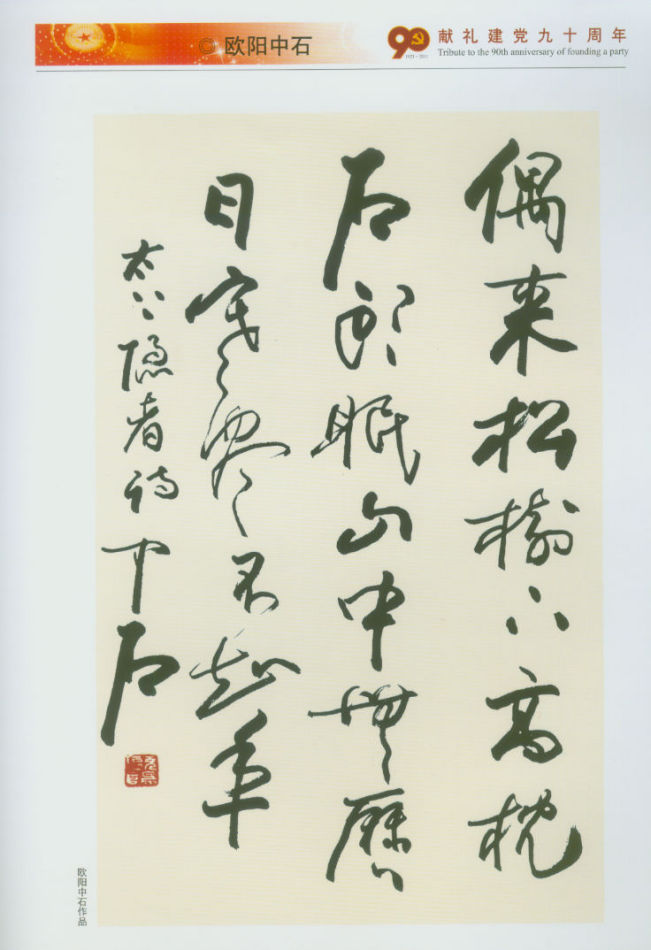 欧阳中石
90
1921-2011
献礼建党九十周年
Tribute to the 90th anniversary of founding a party
偶来松樹下高枕
石頭眠山中無曆
日寒盡不知年
太上隐者诗 中石
欧阳中石作品